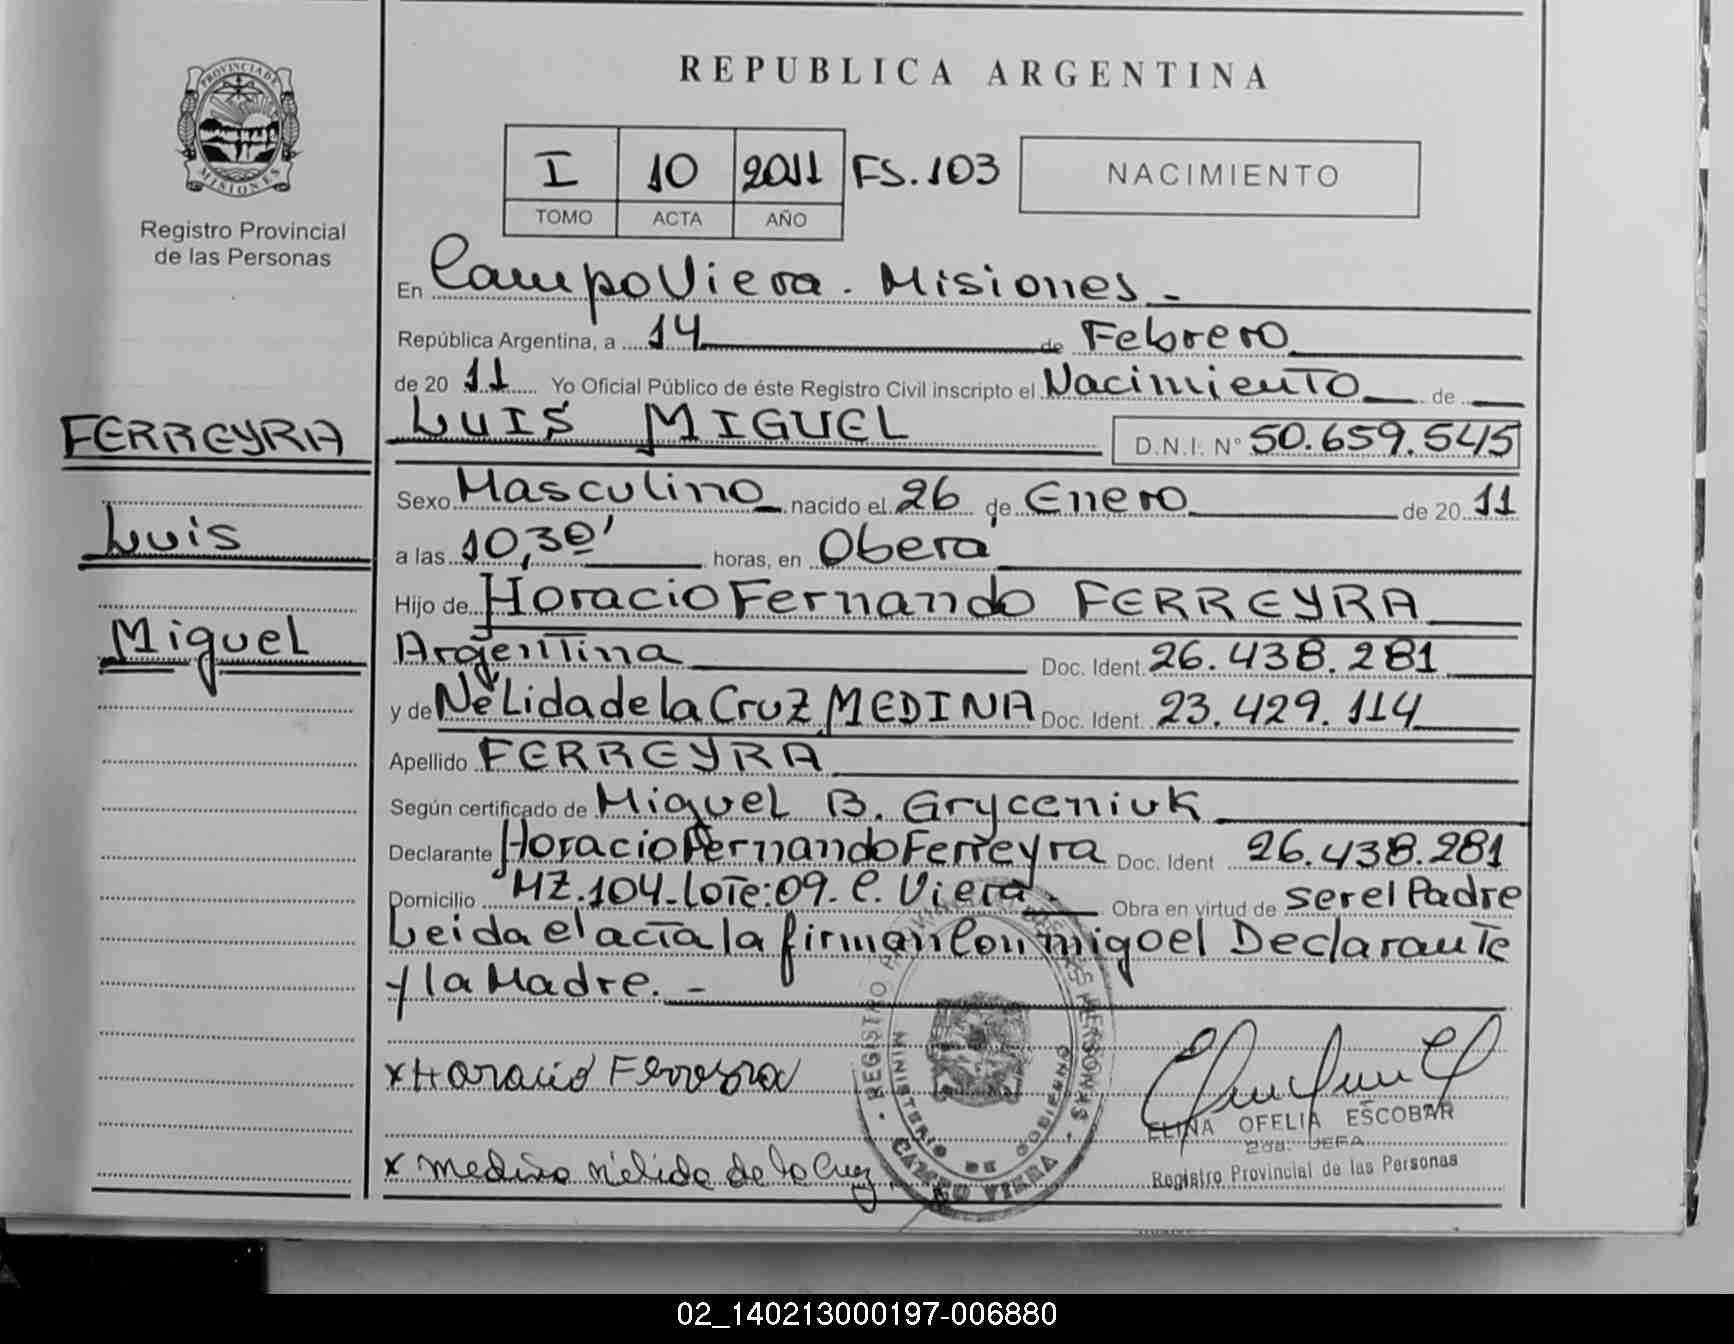 PROVINCIA DE
MISIONES
Registro Provincial
de las Personas
FERREYRA
Luis
Miguel
REPUBLICA ARGENTINA
I 10 2011 FS.103
TOMO ACTA AÑO
NACIMIENTO
En Campo Viera. Misiones -
República Argentina, a 14 de Febrero
de 20 11 Yo Oficial Público de éste Registro Civil inscripto el Nacimiento de
LUIS MIGUEL D.N.I. N° 50.659.545
Sexo Masculino nacido el 26 de Enero de 20 11
a las 10,30' horas, en Obera
Hijo de Horacio Fernando FERREYRA
Argentina Doc. Ident. 26.438.281
y de Nelida de la Cruz MEDINA Doc. Ident. 23.429.114
Apellido FERREYRA
Según certificado de Miguel B. Gryceniuk
Declarante Horacio Fernando Ferreyra Doc. Ident 26.438.281
Domicilio MZ.104-Lote:09. C. Viera. Obra en virtud de ser el Padre
Leida el acta la firman Con migo el Declarante
y la Madre. -
x Horacio Ferreyra
x Medina nélida de la Cruz
REGISTRO PROVINCIAL DE LAS PERSONAS
MINISTERIO DE GOBIERNO
CAMPO VIERA
ELINA OFELIA ESCOBAR
2da. JEFA
Registro Provincial de las Personas
02_140213000197-006880